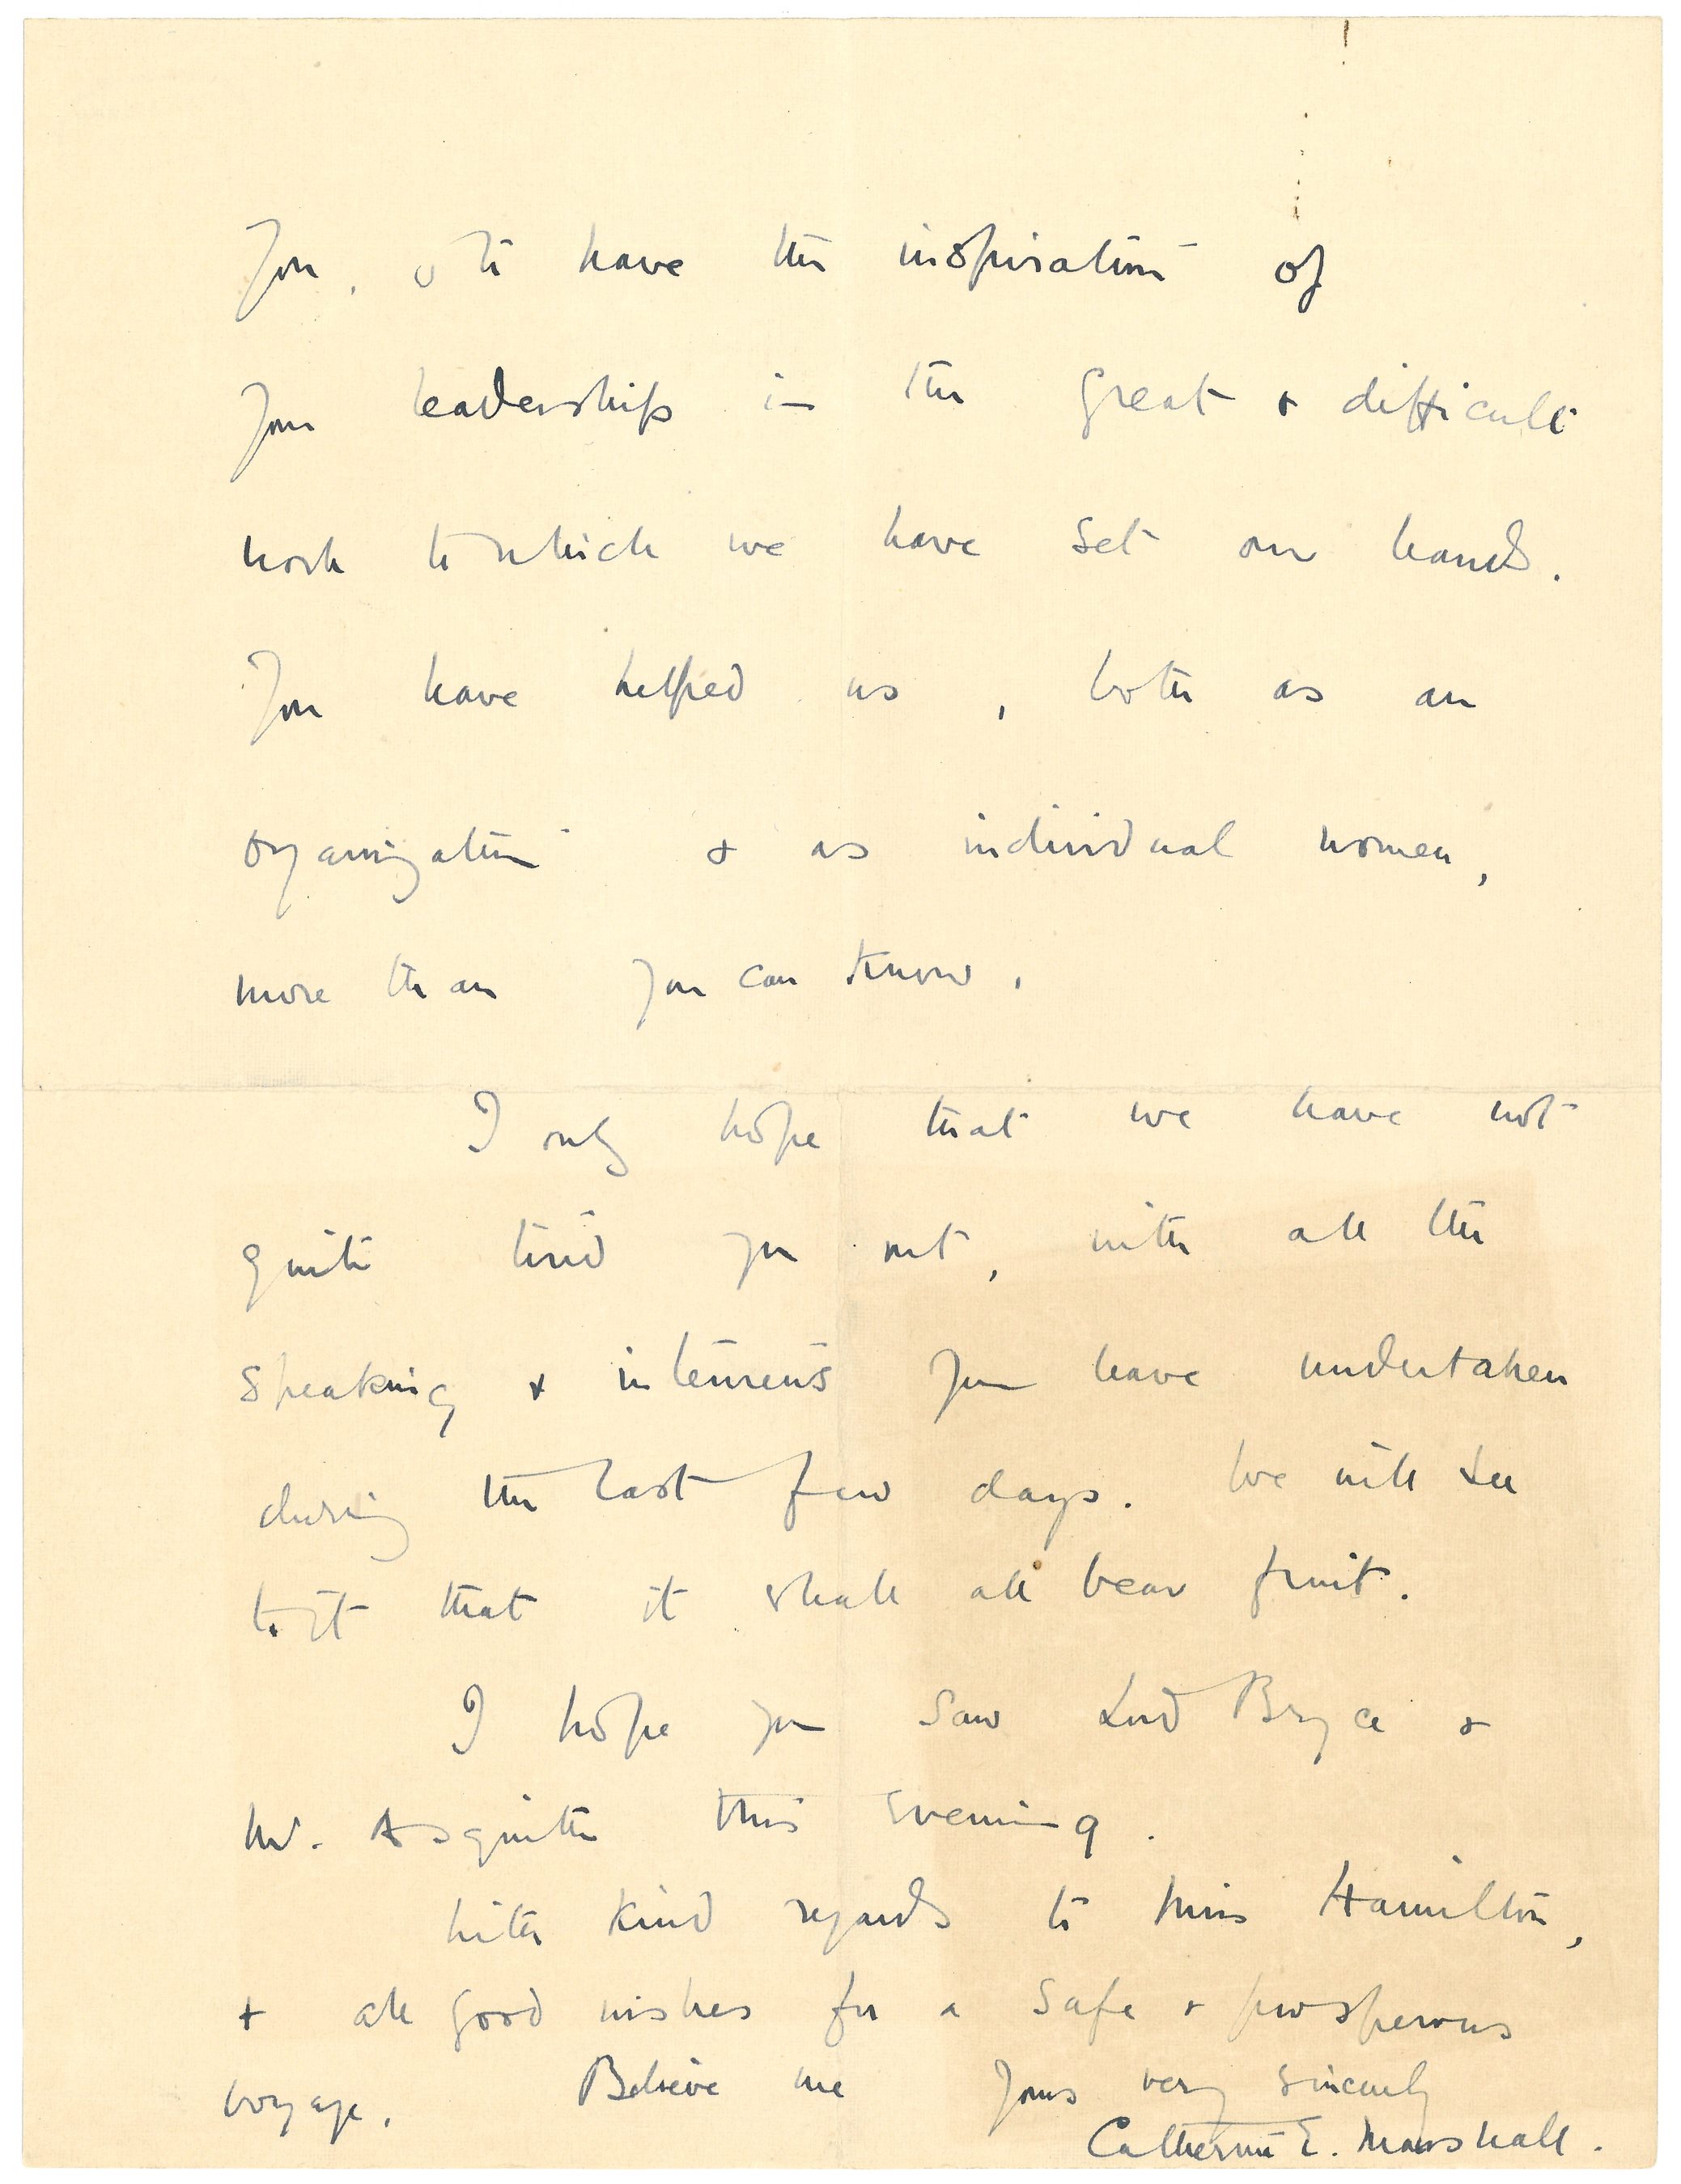 you, & to have the inspiration of
your leadership in the great & difficult
work to which we have set our hands.
You have helped us, both as an
organization & as individual women,
more than you can know.
I only hope that we have not
quite tired you out, with all the
speaking & interviews you have undertaken
during the last few days. We will see
to it that it shall all bear fruit.
I hope you saw Lord Bryce &
Mr. Asquith this evening.
With kind regards to Miss Hamilton,
& all good wishes for a safe & prosperous
voyage. Believe me Yours very sincerely
Catherine E. Marshall.